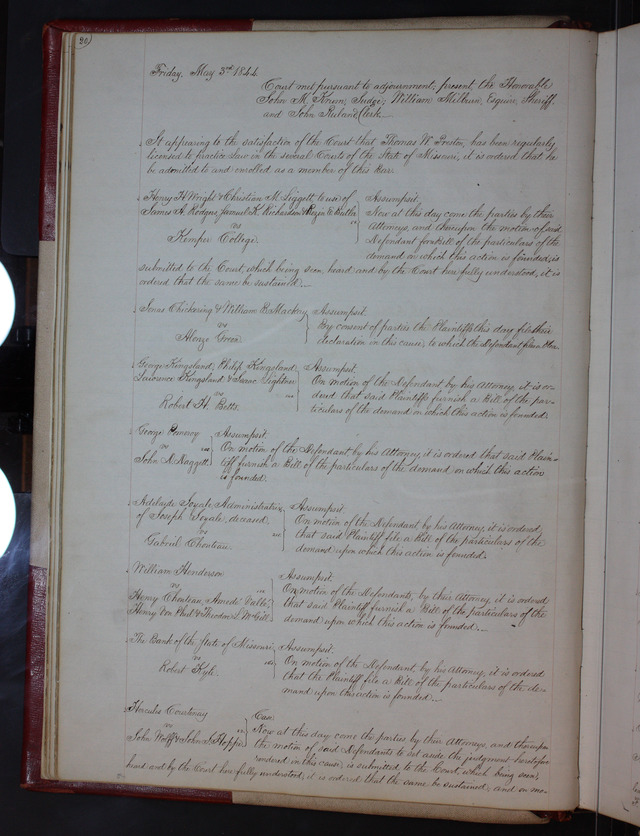 20
Friday, May 3rd 1844
Court met pursuant to adjournment; present, the Honorable
John M. Krum, Judge; William Milburn, Esquire, Sheriff.
and John Ruland Clerk.
It appearing to the satisfaction of the Court that Thomas W. Preston, has been regularly
licensed to practice Law in the several Courts of the State of Missouri, it is ordered that he
be admitted to and enrolled as a member of this Bar.
Henry H. Wright & Christian M. Liggett to use of
James H. Rodgers, Samuel K. Richardson & Butler
vs
Kemper College.
Assumpsit.
Now at this day come the parties by their
Attorneys, and thereupon the motion of said
Defendant for a Bill of the particulars of the
demand on which this action is founded, is
submitted to the Court, which being seen, heard and by the Court here fully understood, it is
ordered that the same be sustained.
Jonas Chickering & William B. Mackay
vs
Alonzo Green
Assumpsit.
By consent of parties the Plaintiffs this day file their
declaration in this cause, to which the Defendant files a Plea.
George Kingsland, Philip Kingsland,
Lawrence Kingsland & Isaac Lightner
vs
Robert H. Betts.
Assumpsit.
On motion of the Defendant by his Attorney, it is or-
dered that said Plaintiffs furnish a Bill of the par-
ticulars of the demand on which this action is founded.
George Pomeroy
vs
John N. Daggett.
Assumpsit.
On motion of the Defendant by his Attorney it is ordered that said Plain-
tiff furnish a Bill of the particulars of the demand on which this action
is founded.
Adelaide Soyale, Administratrix
of Joseph Soyale, deceased.
vs
Gabriel Chouteau.
Assumpsit.
On motion of the Defendant, by his Attorney, it is ordered
that said Plaintiff file a Bill of the particulars of the
demand upon which this action is founded.
William Henderson
vs
Henry Chouteau, Amedé Vallé,
Henry Von Phul & Theodore McGill.
Assumpsit.
On motion of the Defendants, by their Attorney, it is ordered
that said Plaintiff furnish a Bill of the particulars of the
demand upon which this action is founded.
The Bank of the State of Missouri
vs
Robert Kyle.
Assumpsit.
On motion of the Defendant, by his Attorney, it is ordered
that the Plaintiff file a Bill of the particulars of the de-
mand upon this action is founded.
Hercules Courtenay
vs
John Wolff & John S. Hoppe
Case
Now at this day come the parties by their Attorneys, and thereupon
the motion of said Defendants to set aside the judgment heretofore
rendered in this cause, is submitted to the Court, which being seen,
heard and by the Court here fully understood, it is ordered that the same be sustained, and on mo-